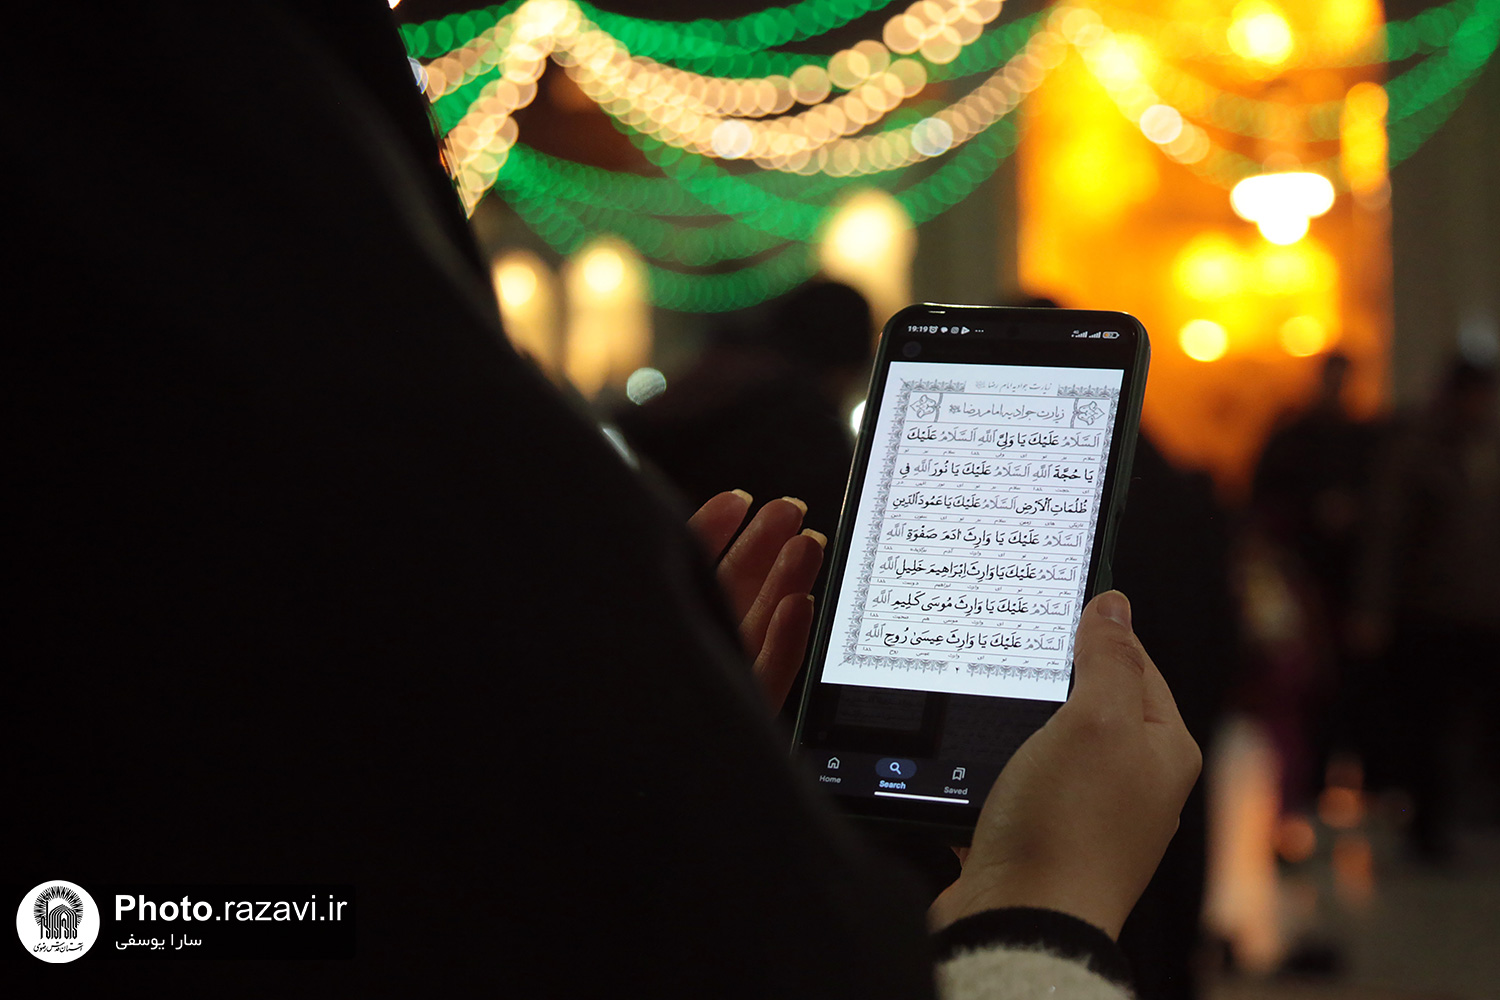 19:19
زیارت جوادیه امام رضا
زیارت جوادیه امام رضا
اَلسَّلَامُ عَلَيْكَ يَا وَلِيَّ اللّٰهِ اَلسَّلَامُ عَلَيْكَ
يَا حُجَّةَ اللّٰهِ اَلسَّلَامُ عَلَيْكَ يَا نُورَ اللّٰهِ فِي
ظُلُمَاتِ الْاَرْضِ اَلسَّلَامُ عَلَيْكَ يَا عَمُودَ الدِّينِ
اَلسَّلَامُ عَلَيْكَ يَا وَارِثَ اٰدَمَ صَفْوَةِ اللّٰهِ
اَلسَّلَامُ عَلَيْكَ يَا وَارِثَ اِبْرَاهِيمَ خَلِيلِ اللّٰهِ
اَلسَّلَامُ عَلَيْكَ يَا وَارِثَ مُوسَى كَلِيمِ اللّٰهِ
اَلسَّلَامُ عَلَيْكَ يَا وَارِثَ عِيسَىٰ رُوحِ اللّٰهِ
٢
Home Search Saved
Photo.razavi.ir
سارا یوسفی
آستان قدس رضوی